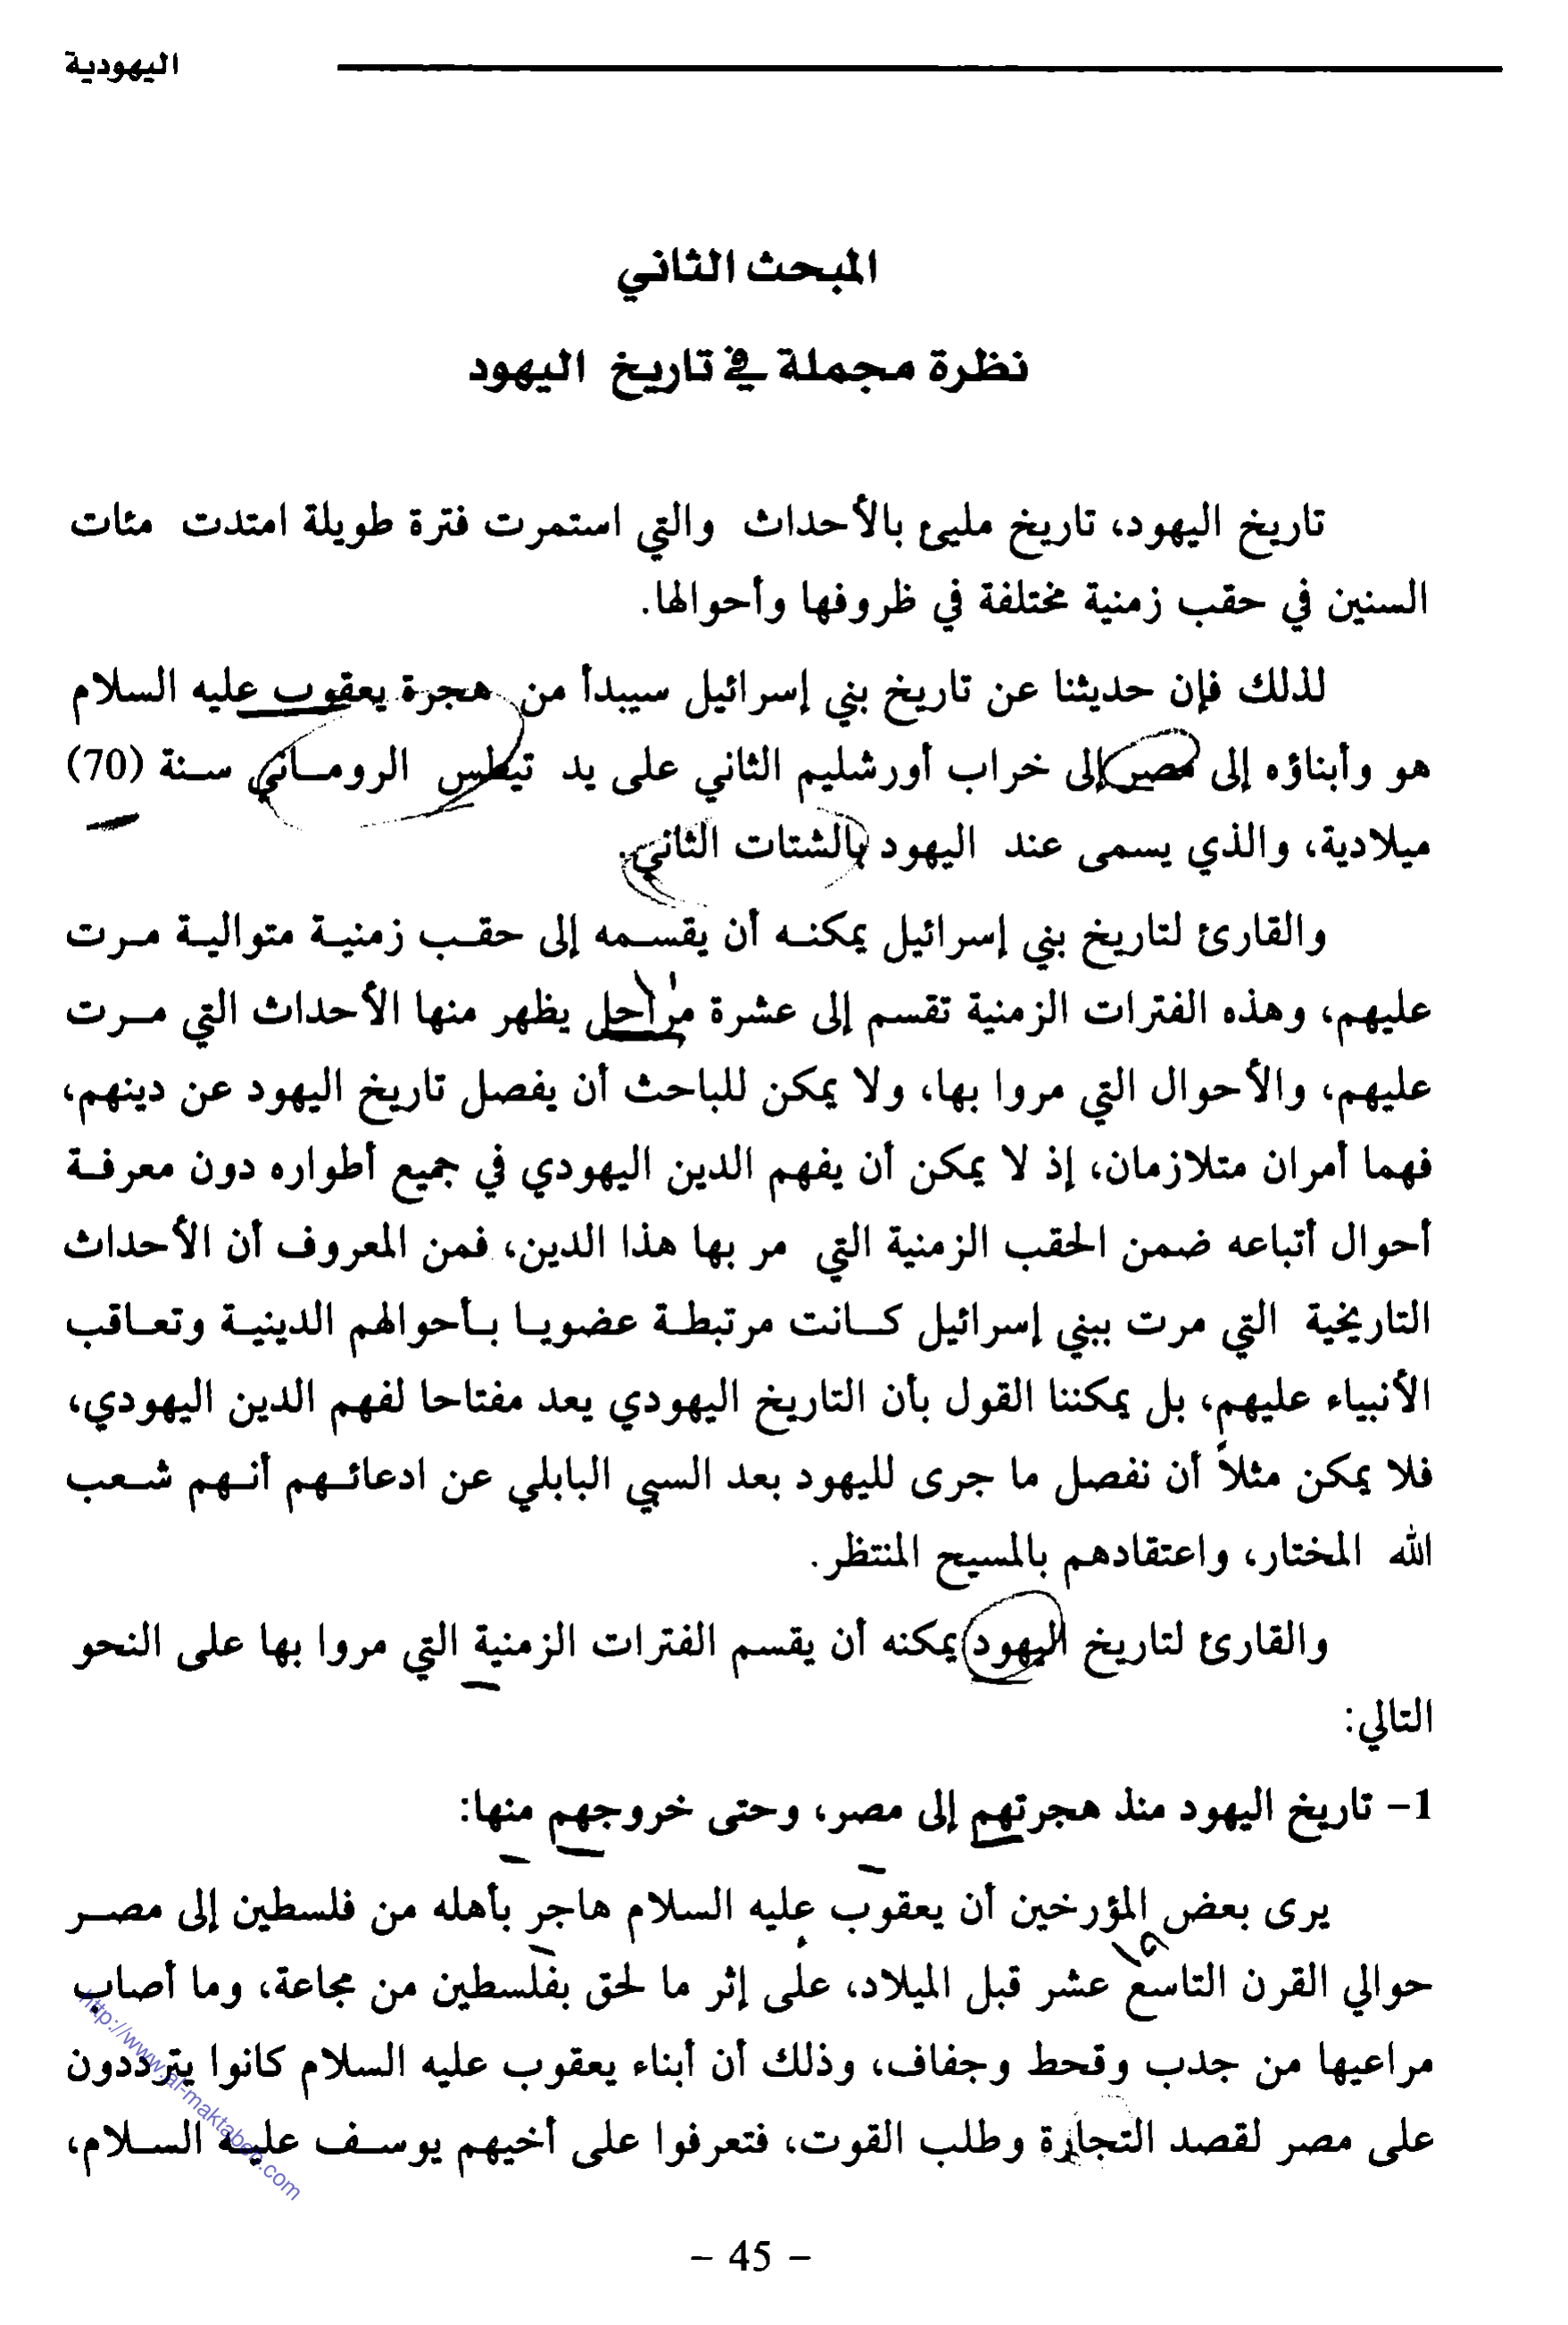 اليهودية
المبحث الثاني
نظرة مجملة في تاريخ اليهود
تاريخ اليهود، تاريخ مليئ بالأحداث والتي استمرت فترة طويلة امتدت مئات
السنين في حقب زمنية مختلفة في ظروفها وأحوالها.
لذلك فإن حديثنا عن تاريخ بني إسرائيل سيبدأ من هجرة يعقوب عليه السلام
هو وأبناؤه إلى مصر إلى خراب أورشليم الثاني على يد تيطس الروماني سنة (70)
ميلادية، والذي يسمى عند اليهود بالشتات الثاني.
والقارئ لتاريخ بني إسرائيل يمكنه أن يقسمه إلى حقب زمنية متوالية مرت
عليهم، وهذه الفترات الزمنية تقسم إلى عشرة مراحل يظهر منها الأحداث التي مرت
عليهم، والأحوال التي مروا بها، ولا يمكن للباحث أن يفصل تاريخ اليهود عن دينهم،
فهما أمران متلازمان، إذ لا يمكن أن يفهم الدين اليهودي في جميع أطواره دون معرفة
أحوال أتباعه ضمن الحقب الزمنية التي مر بها هذا الدين، فمن المعروف أن الأحداث
التاريخية التي مرت ببني إسرائيل كانت مرتبطة عضويا بأحوالهم الدينية وتعاقب
الأنبياء عليهم، بل يمكننا القول بأن التاريخ اليهودي يعد مفتاحا لفهم الدين اليهودي،
فلا يمكن مثلاً أن نفصل ما جرى لليهود بعد السبي البابلي عن ادعائهم أنهم شعب
الله المختار، واعتقادهم بالمسيح المنتظر.
والقارئ لتاريخ اليهود يمكنه أن يقسم الفترات الزمنية التي مروا بها على النحو
التالي:
1- تاريخ اليهود منذ هجرتهم إلى مصر، وحتى خروجهم منها:
يرى بعض المؤرخين أن يعقوب عليه السلام هاجر بأهله من فلسطين إلى مصر
حوالي القرن التاسع عشر قبل الميلاد، على إثر ما لحق بفلسطين من مجاعة، وما أصاب
مراعيها من جدب وقحط وجفاف، وذلك أن أبناء يعقوب عليه السلام كانوا يترددون
على مصر لقصد التجارة وطلب القوت، فتعرفوا على أخيهم يوسف عليه السلام،
- 45 -
http://www.al-maktabeh.com